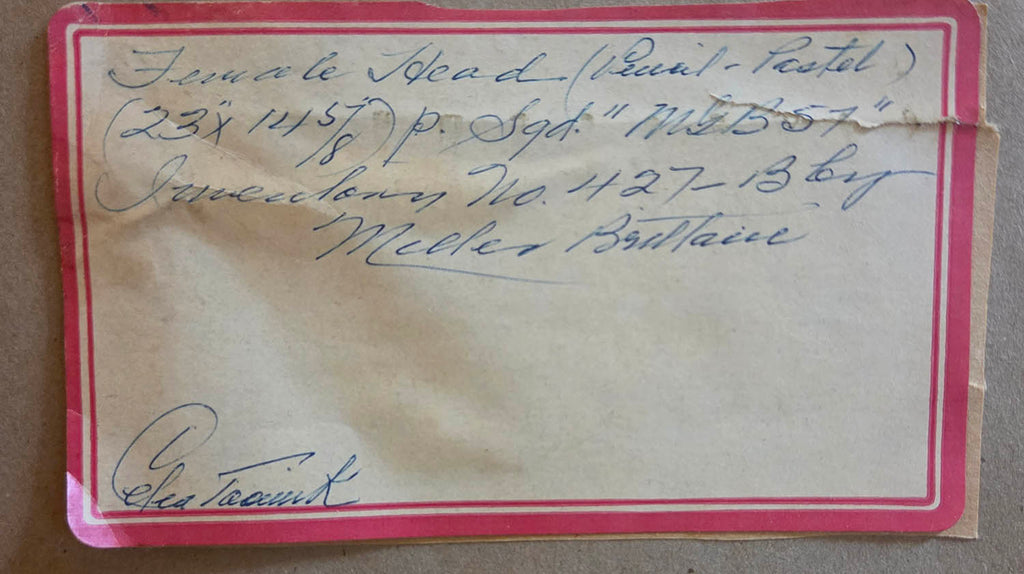 Female Head (Pencil - Pastel)
(23" x 14 5/8") p. Sgd. "MGB57"
Inventory No. 427-B by
Miller Brittain